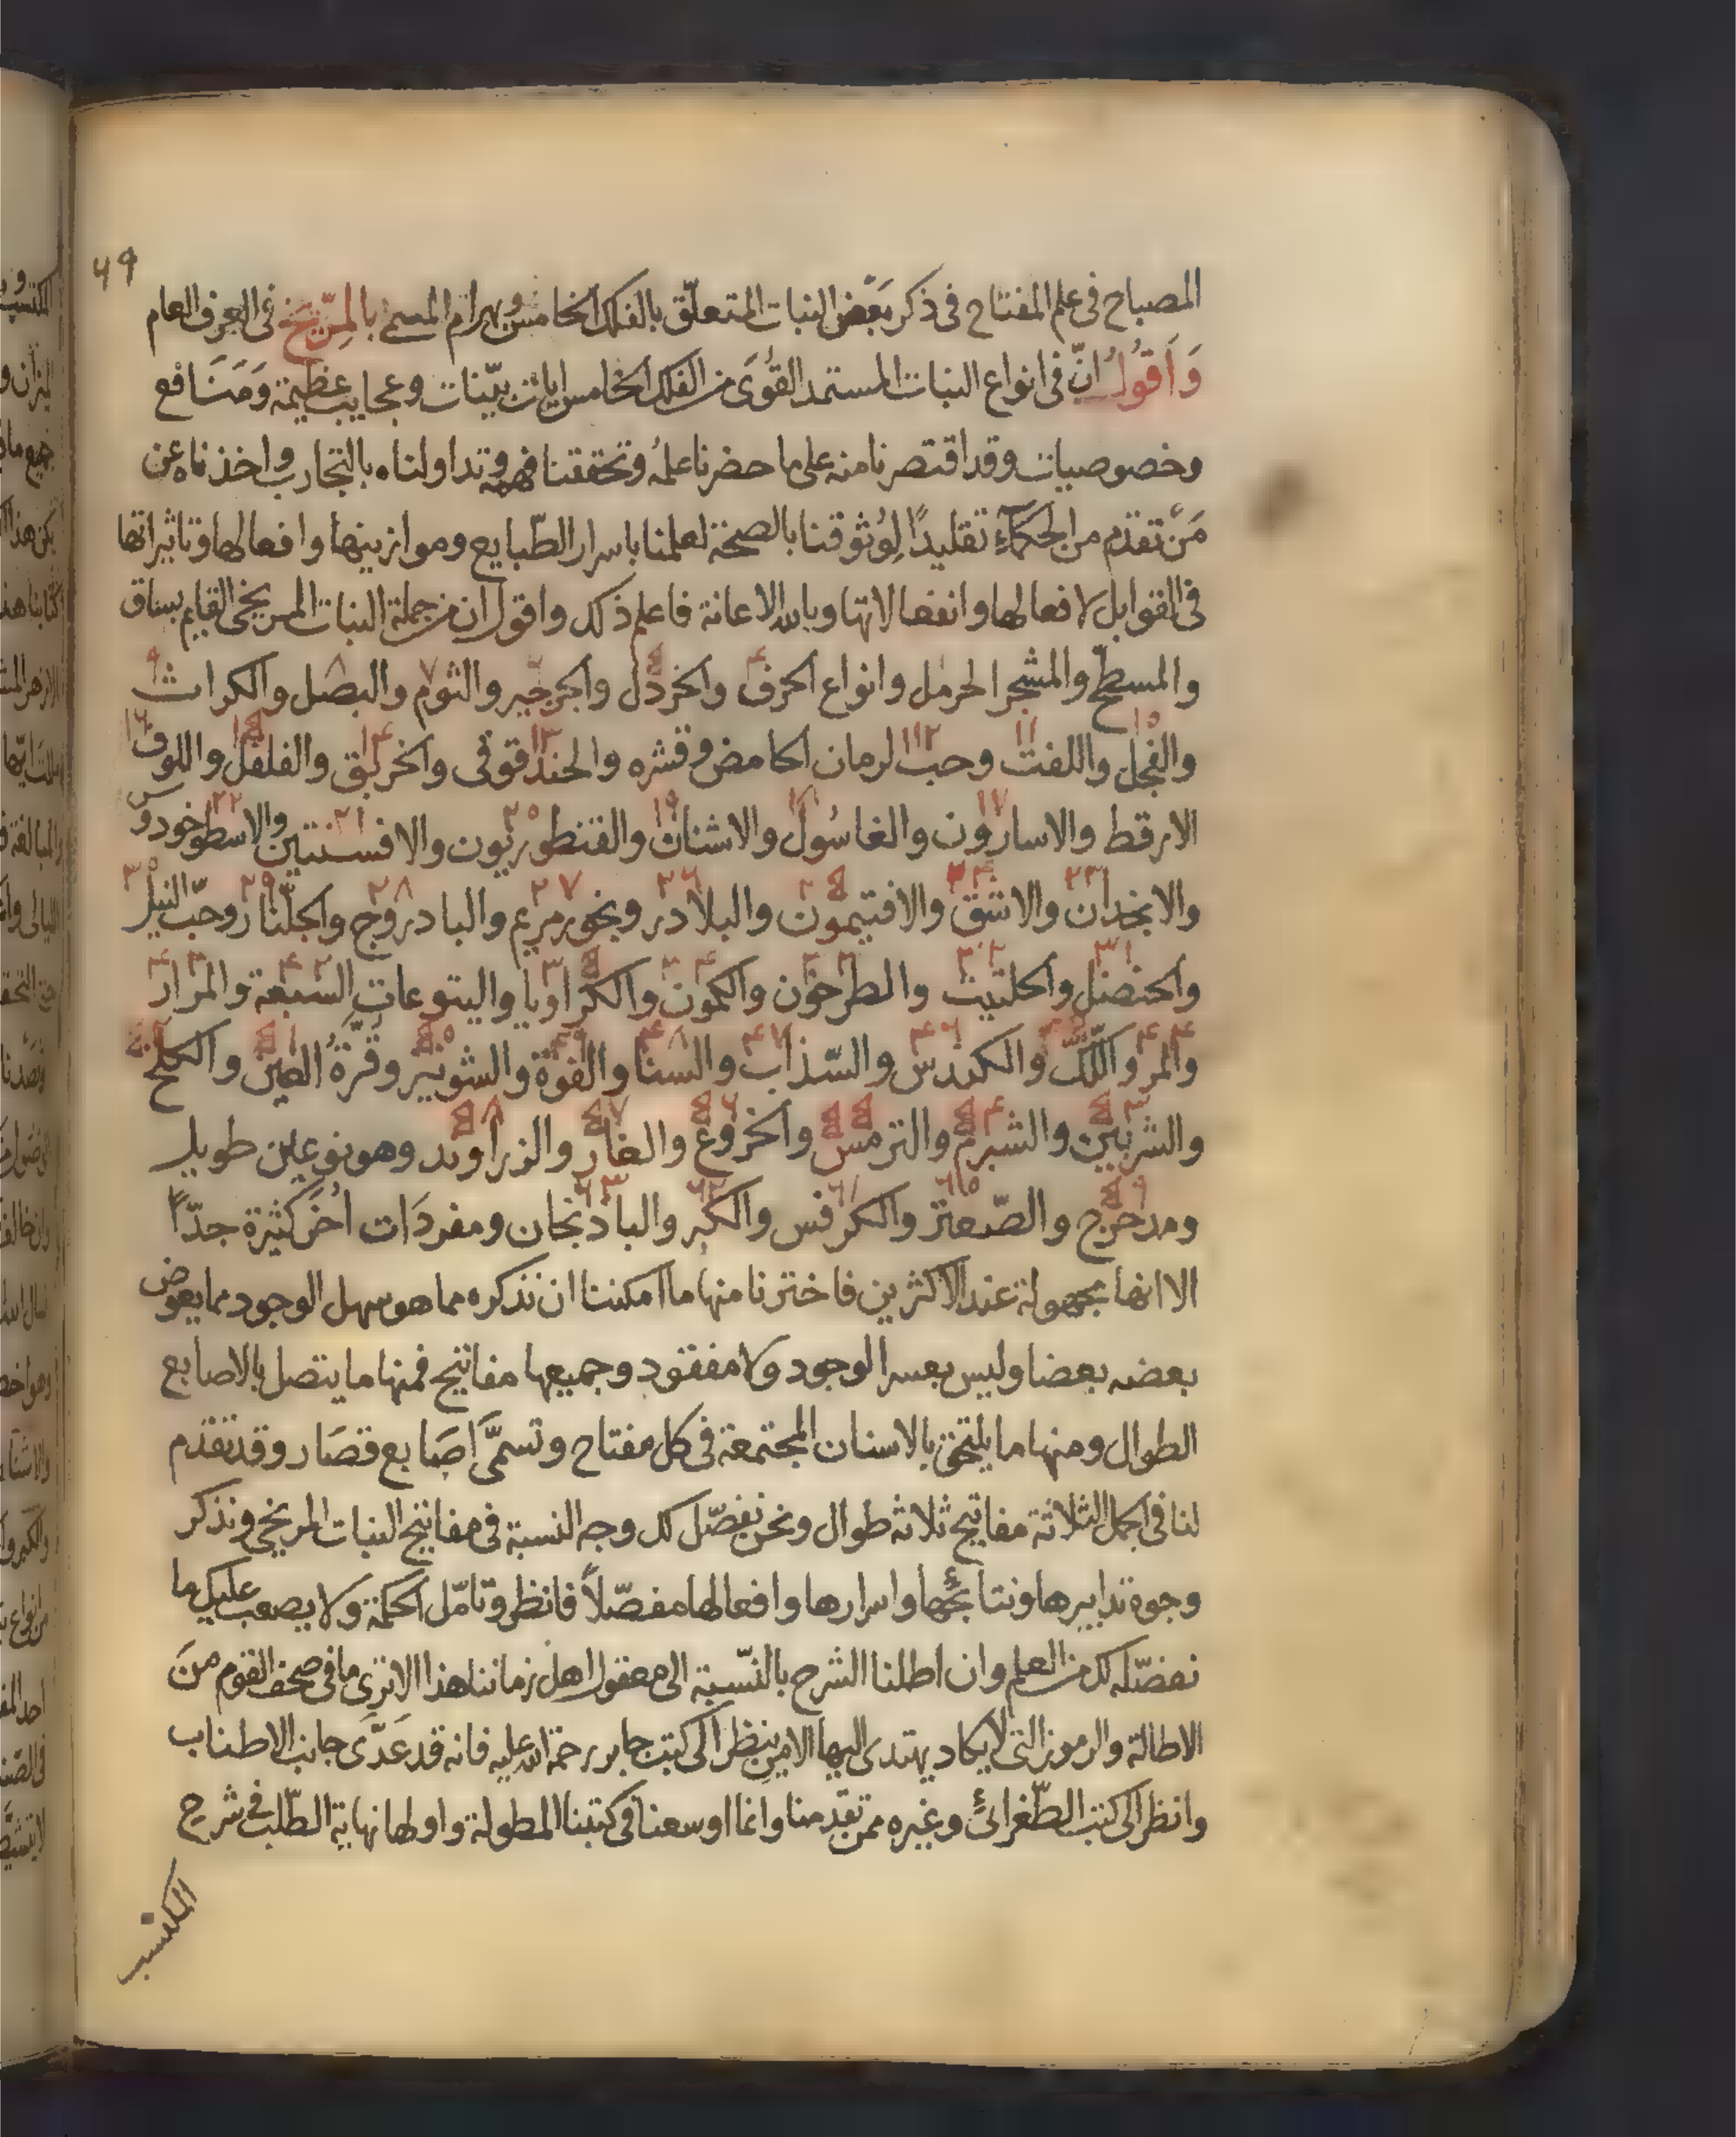 ٦٩
المصباح فى علم المفتاح فى ذكر بَعْض النبات المتعلّق بالفلك الخامس وبهرام المسمى بالمِرّيخ فى العرف العام
وَأقُولُ انّ فى انواع النبات المستمد القُوَى من الفلك الخامس ايات بيّنات وعجايب عظيمة وَمَنَافع
وخصوصيات وقد اقتصرنا منه على ما حضرنا علمُه وتحققنا فهمه وتداولناه بالتجارب واخذناه عن
مَنْ تقدّم من الحكمآءِ تقليدًا لِوُثوقنا بالصحة لعلمنا باسرار الطّبايع وموازينها وافعالها وتاثيراتها
فى القوابل لافعالها وانفعالاتها وبالله الاعانة فاعلم ذلك واقول ان من جملة النبات المريخى القايم بساق
والمسطّح والمشجر الحرمل وانواع الحرف والخردل والجرجير والثوم والبصل والكراث
والفجل واللفت وحب الرمان الحامض وقشره والحندقوقى والخربق والفلفل واللوف
الارقط والاسارون والغاسُول والاشنان والقنطوريون والافسنتين والاسطوخودوس
والانجدان والاشق والافتيمون والبلادر وبخور مريم والبادروج والجلّنار وحبّ النيل
والحنضل والحلتيت والطرخون والكمون والكراويا واليتوعات السّبعة والمرار
والمر واللّك والكندس والسّذاب والسنا والفوّة والشونيز وقرّةُ العين والكلخ
والشربين والشبرم والترمس والخروع والغار والزراوند وهو نوعين طويل
ومدحرج والصّعتر والكرفس والكبر والبادنجان ومفردَات اُخَر كثيرة جدّاً
الا انها مجهولة عند الاكثرين فاخترنا منها ما امكننا ان نذكره مما هو سهل الوجود مما يعوض
بعضه بعضا وليس بعسر الوجود ولا مفقود وجميعها مفاتيح فمنها ما يتصل بالاصابع
الطوال ومنها ما يلتحق بالاسنان المجتمعة فى كل مفتاح وتسمَّى اصَابع قصَار وقد تقدم
لنا فى الجمل الثلاثة مفاتيح ثلاثه طوال ونحن نفصّل لك وجه النسبة فى مفاتيح النبات المريخى ونذكر
وجوه تدابيرها ونتائجها واسرارها وافعالها مفصّلاً فانظر وتامّل الحكمة ولا يصعب عليك ما
نفصّله لك من العلم وان اطلنا الشرح بالنّسبة الى معقول اهل زماننا هذا الا ترى ما فى صحف القوم منَ
الاطالة والرموز التى لا يكاد يهتدى اليها الا من ينظر الى كتب جابر رحمة الله عليه فانه قد عَدَّى جانب الاطناب
وانظر الى كتب الطّغرائى وغيره ممن تقدمنا وانما اوسعنا فى كتبنا المطولة واولها نهاية الطّلب فى شرح
المكتسب